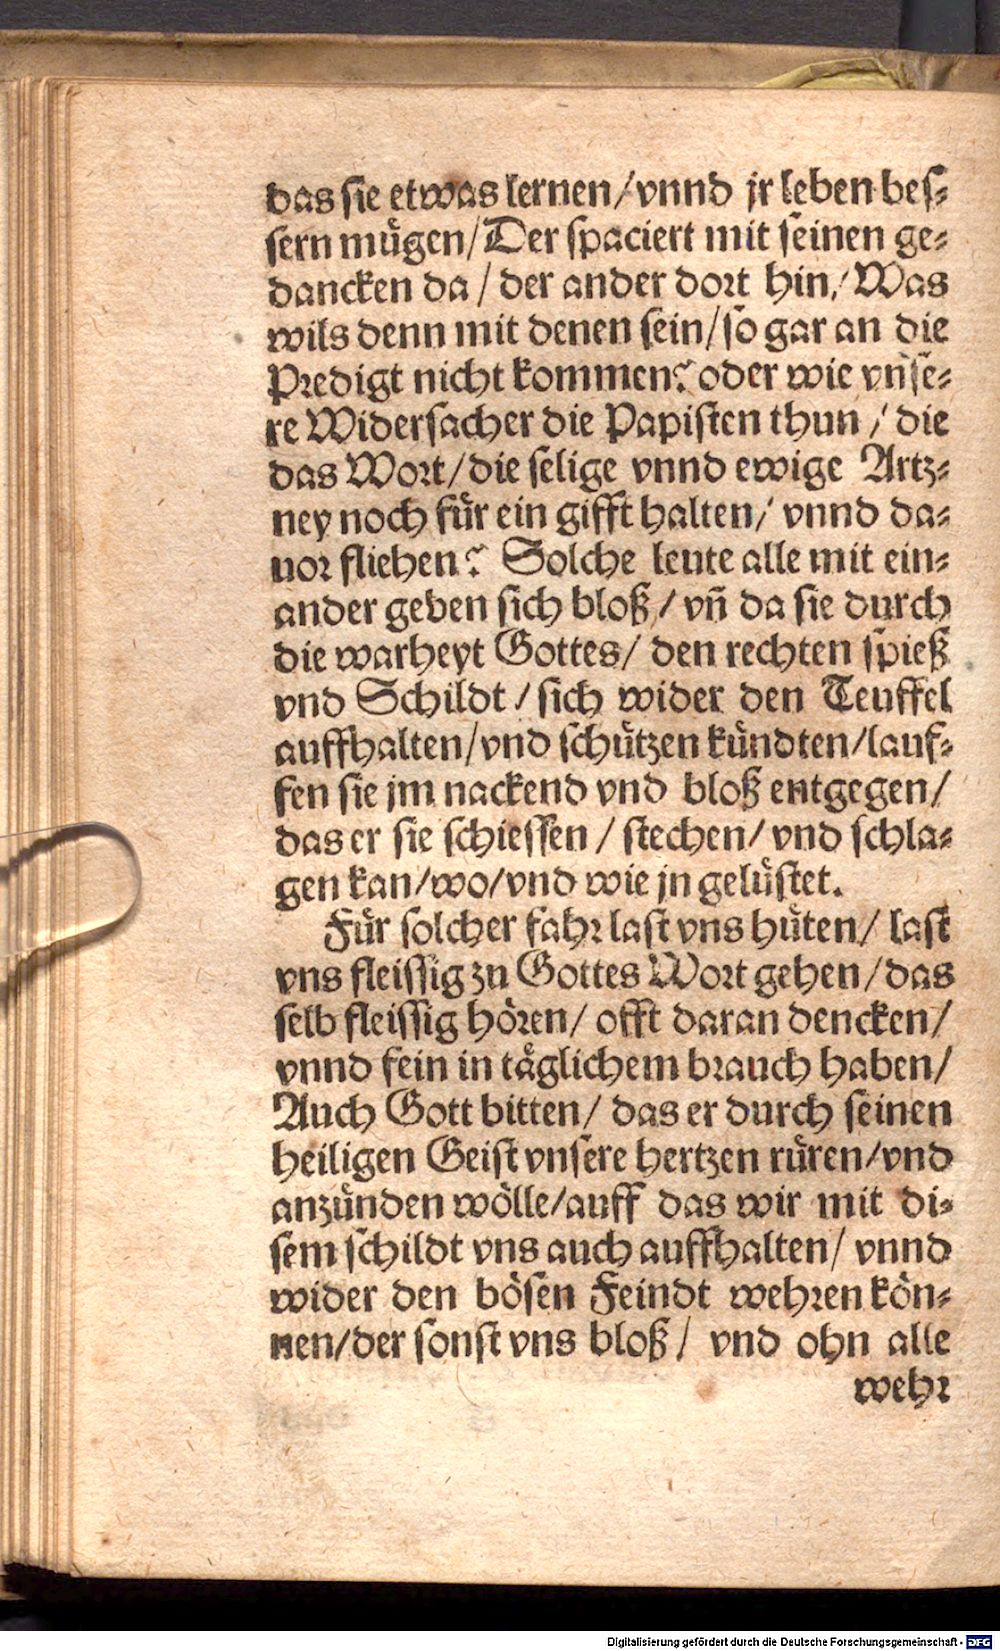 das sie etwas lernen/vnnd jr leben bes⸗
sern mügen/Der spaciert mit seinen ge⸗
dancken da / der ander dort hin/ Was
wils denn mit denen sein/so gar an die
Predigt nicht kommen? oder wie vnse⸗
re Widersacher die Papisten thun / die
das Wort/die selige vnnd ewige Artz⸗
ney noch für ein gifft halten/ vnnd da⸗
uor fliehen? Solche leute alle mit ein⸗
ander geben sich bloß / vñ da sie durch
die warheyt Gottes/ den rechten spieß
vnd Schildt / sich wider den Teuffel
auffhalten/vnd schützen kündten/lauf⸗
fen sie jm nackend vnd bloß entgegen/
das er sie schiessen / stechen/ vnd schla⸗
gen kan/wo/vnd wie jn gelüstet.
Für solcher fahr last vns hüten/ last
vns fleissig zu Gottes Wort gehen/das
selb fleissig hören/ offt daran dencken/
vnnd fein in täglichem brauch haben/
Auch Gott bitten/ das er durch seinen
heiligen Geist vnsere hertzen rüren/vnd
anzünden wölle/auff das wir mit di⸗
sem schildt vns auch auffhalten/ vnnd
wider den bösen Feindt wehren kön⸗
nen/der sonst vns bloß / vnd ohn alle
wehr
Digitalisierung gefördert durch die Deutsche Forschungsgemeinschaft - DFG